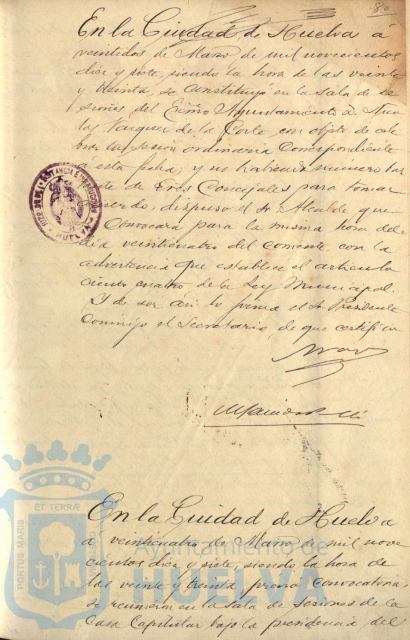 En la Ciudad de Huelva á
veintidos de Marzo de mil novecientos
diez y siete, siendo la hora de las veinte
y treinta, se constituyó en la Sala de Se
siones del Excmo Ayuntamiento D.
Vazquez de la Corte con objeto de cele
brar la sesión ordinaria correspondiente
á esta fecha, y no habiendo número bas
te de Sres Concejales para tomar
acuerdo, dispuso el Sr Alcalde que
convocara para la misma hora del
día veinticuatro del corriente con la
advertencia que establece el artículo
ciento cuatro de la Ley Municipal.
Y de ser así lo firma el Sr Presidente
conmigo el Secretario de que certifico
HUELVA
En la Ciudad de Huelva
a veinticuatro de Marzo de mil nove
cientos diez y siete, siendo la hora de
las veinte y treinta previa convocatoria
se reunieron en la Sala de Sesiones de la
Casa Capitular bajo la presidencia del
PORTUS MARIS
ET TERRÆ
Ayuntamiento de
HUELVA